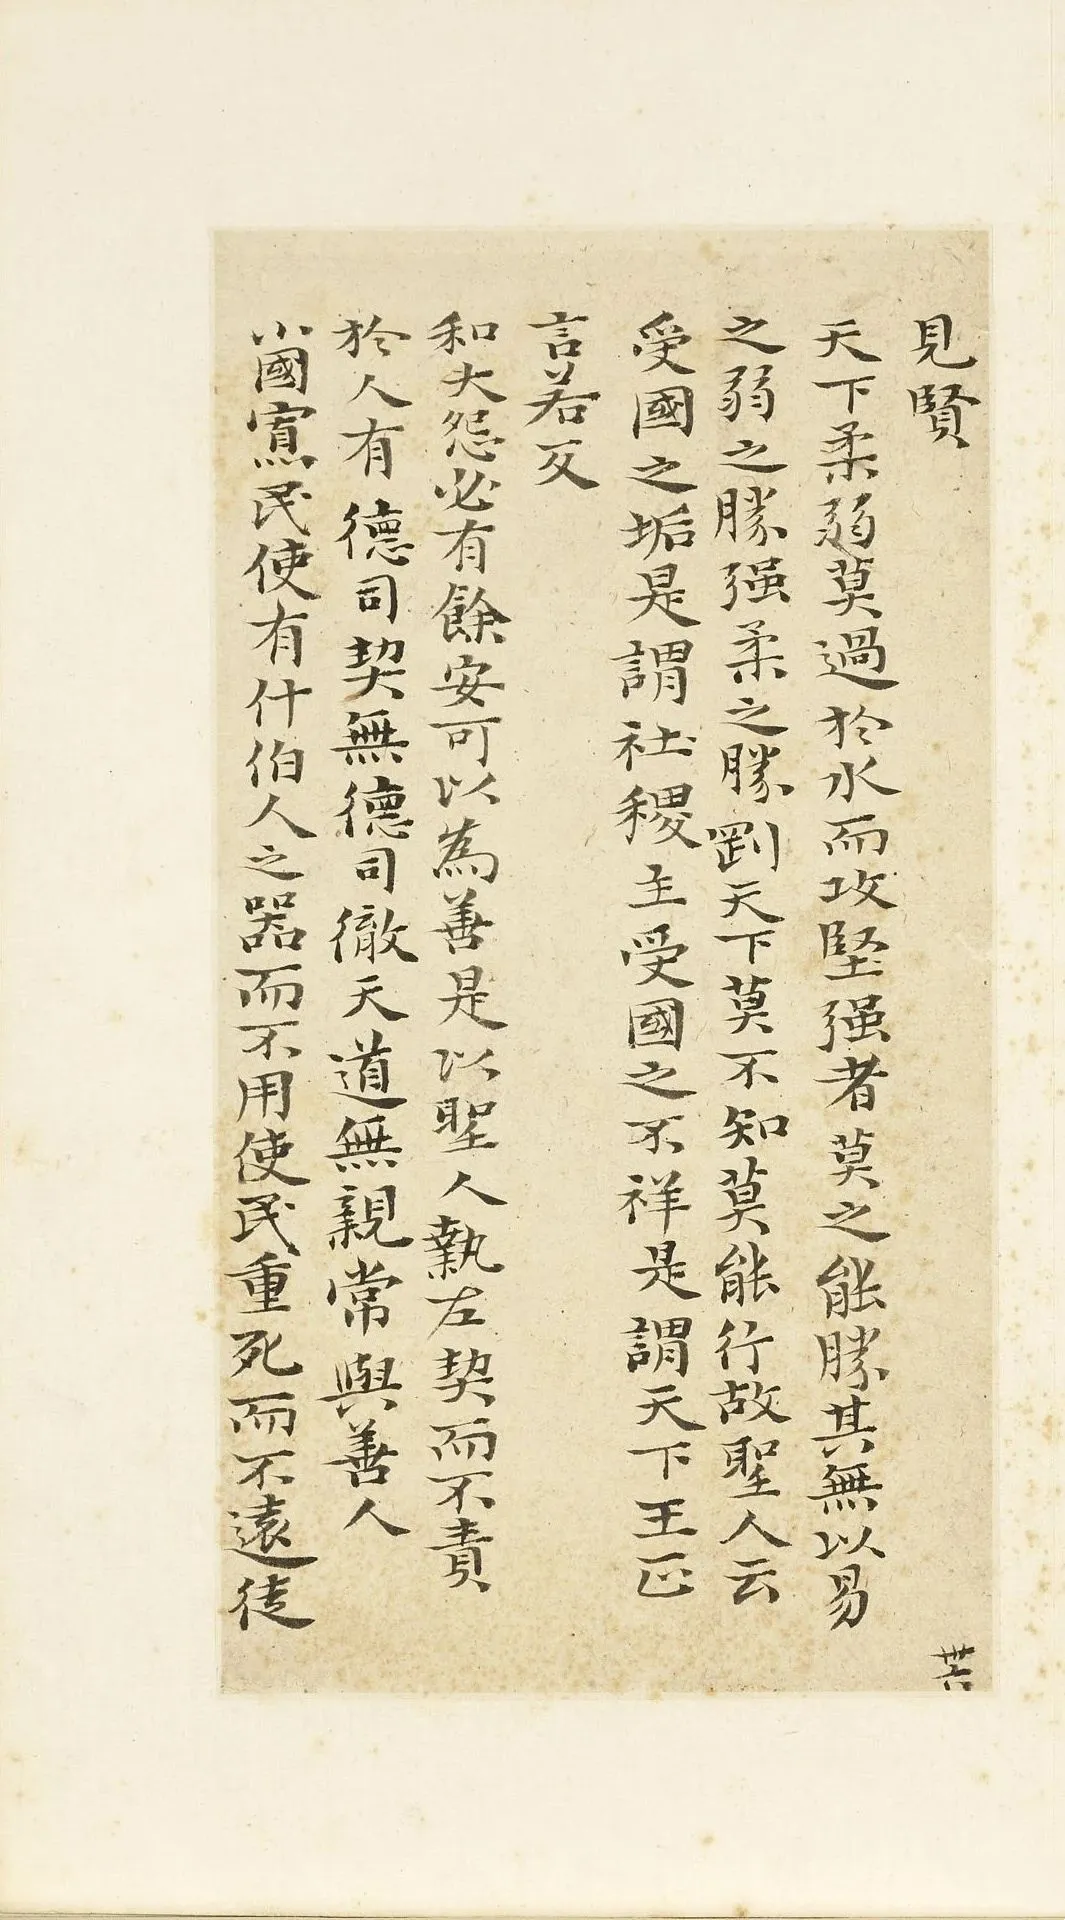 見賢
天下柔弱莫過於水而攻堅强者莫之能勝其無以易
之弱之勝强柔之勝剛天下莫不知莫能行故聖人云
受國之垢是謂社稷主受國之不祥是謂天下王正
言若反
和大怨必有餘安可以為善是以聖人執左契而不責
於人有德司契無德司徹天道無親常與善人
小國寡民使有什伯人之器而不用使民重死而不遠徙